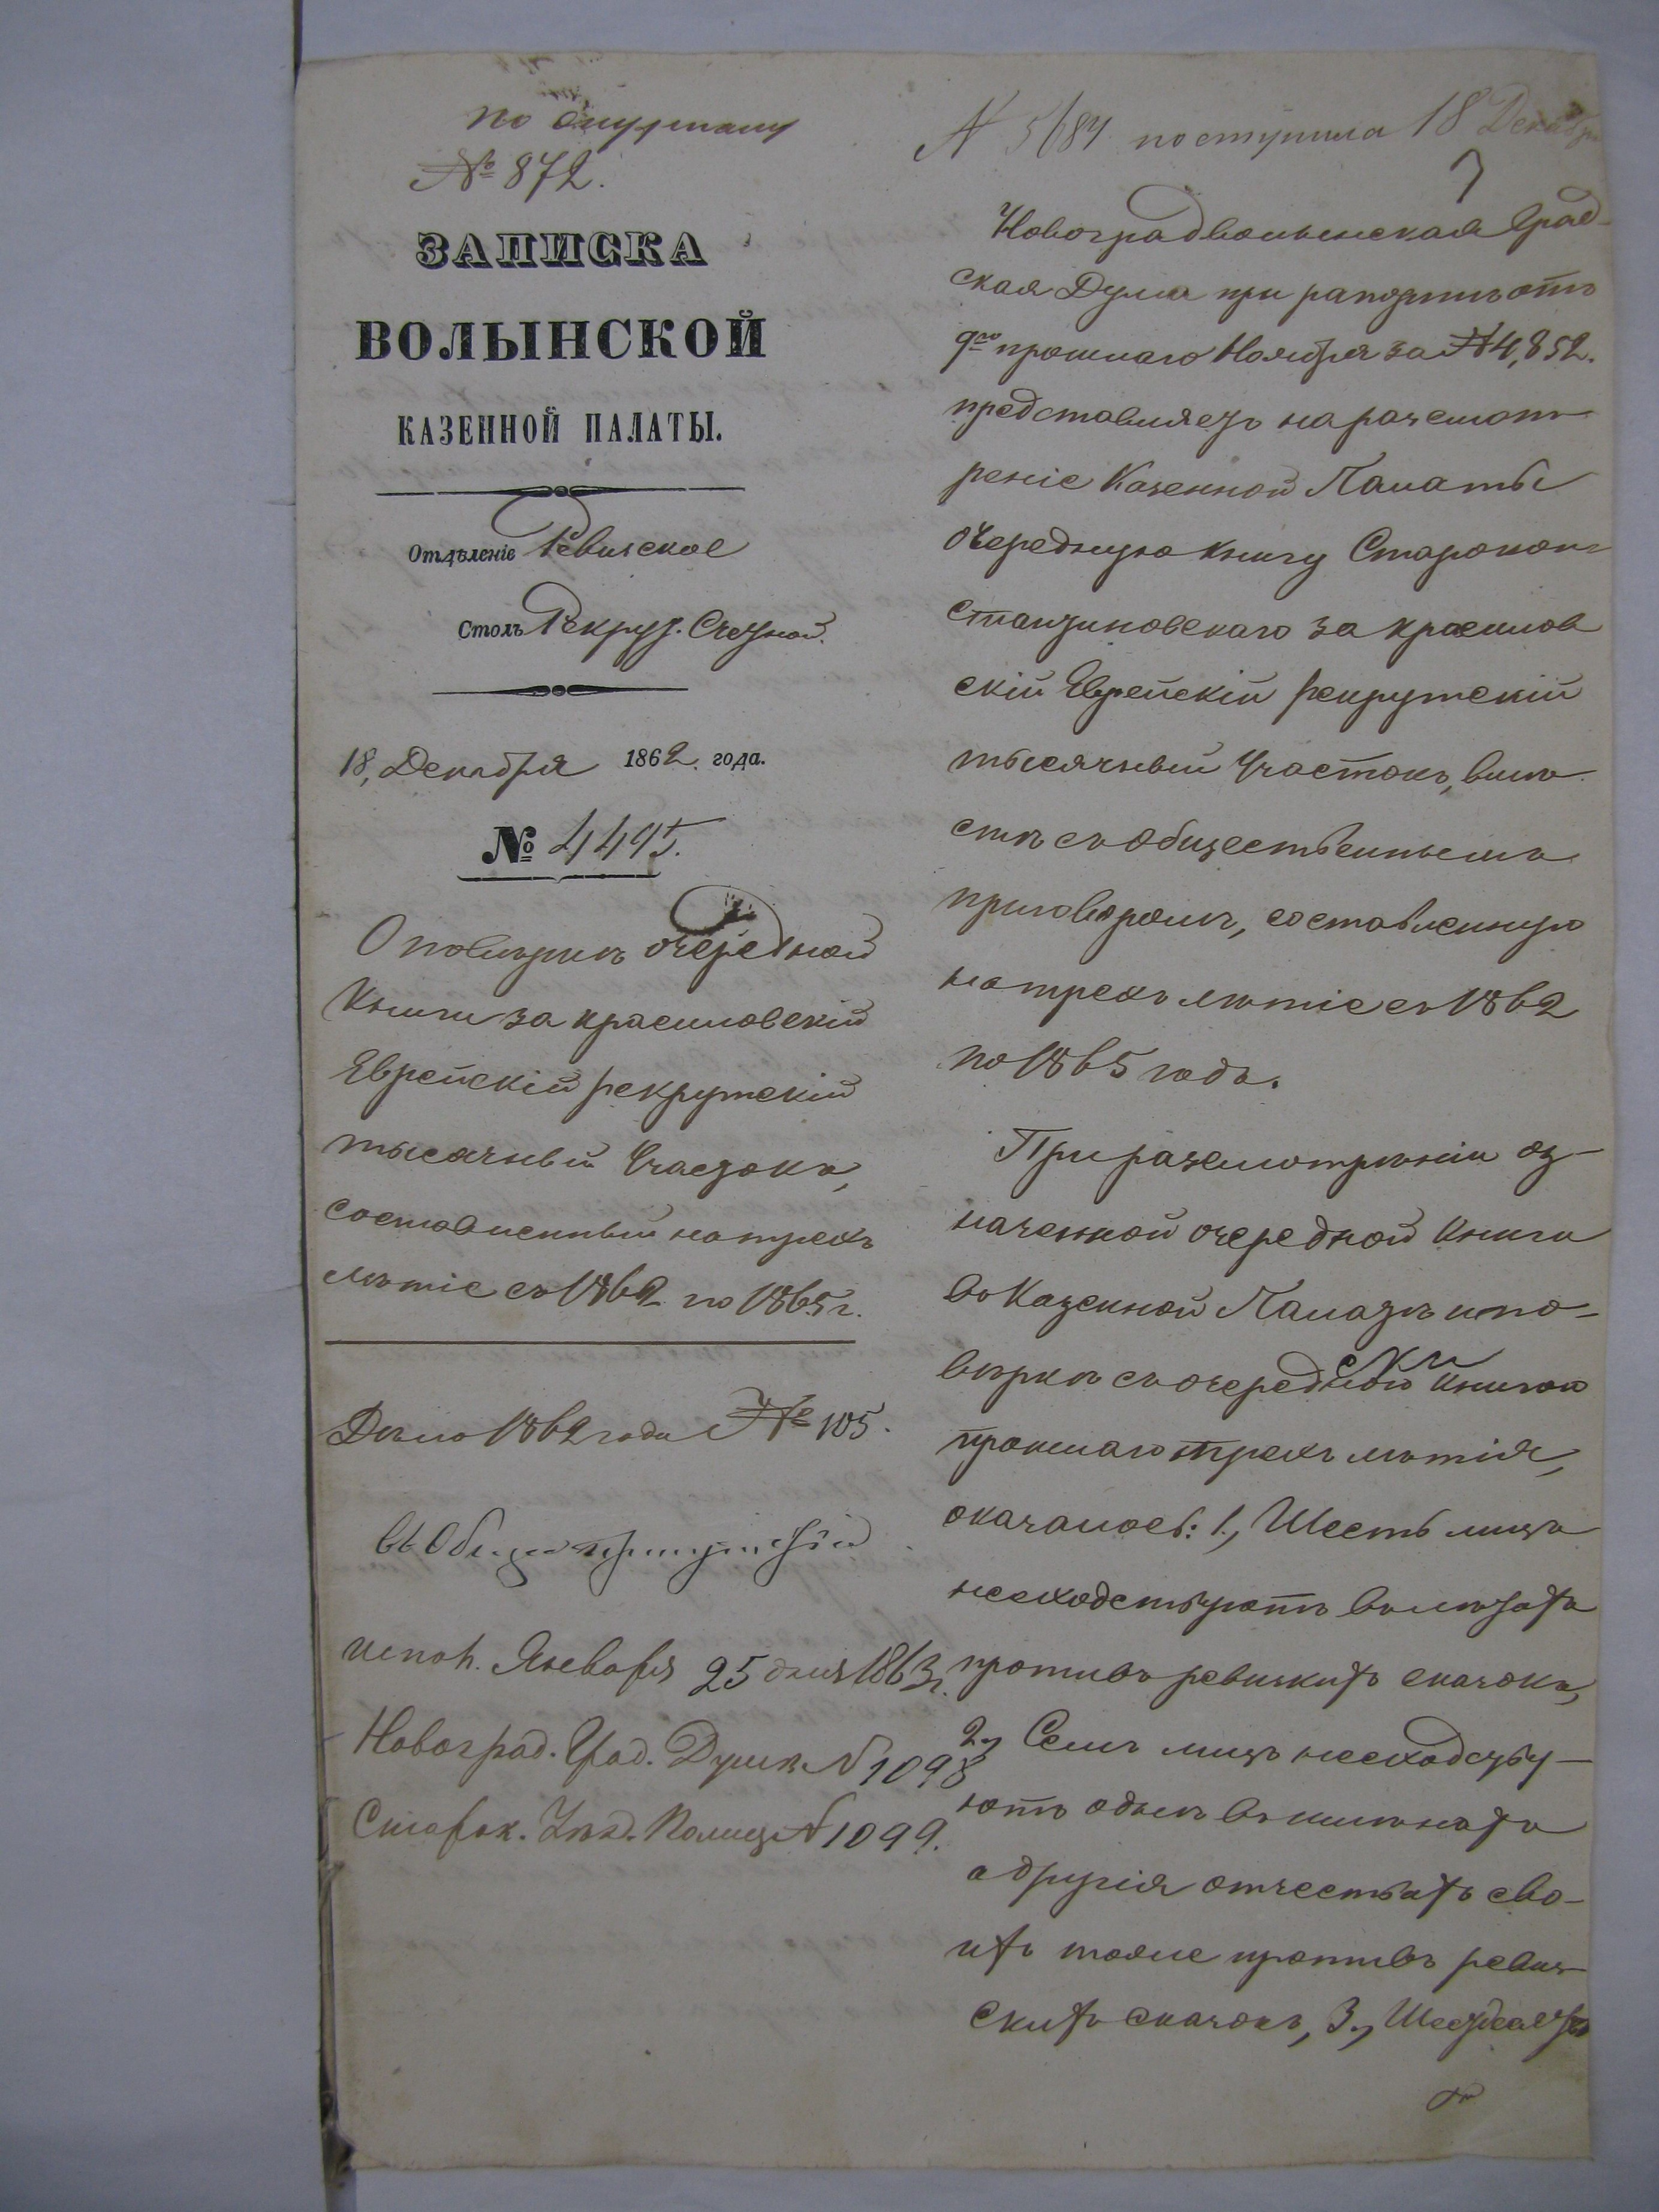 по
№ 872.
ЗАПИСКА
ВОЛЫНСКОЙ
КАЗЕННОЙ ПАЛАТЫ.
Отдѣленіе Ревизское
Столъ Рекрут. Счетной.
18, Декабря 1862 года.
№ 4495.
О повѣркѣ очередной
Книги за красиловскій
Еврейскій рекрутскій
тысячный Участокъ,
составленный на трехъ
лѣтіе съ 1862 по 1865 г.
Дѣло 1862 года № 105.
въ Общее
испол. Января 25 дня 1863 г.
Новоград. Град. Думѣ N 1098
Старок. Уѣзд. Полиц. N 1099.
N 5684 поступила 18 Декабря
7
Новоградволынская Град-
ская Дума при рапортѣ отъ
9го прошлаго Ноября за N 4,852.
представляетъ на разсмот-
реніе Казенной Палаты
очередную книгу Старокон-
стантиновскаго за красилов
скій Еврейскій рекрутскій
тысячный Участокъ, вмѣ
стѣ съ общественнымъ
приговоромъ, составленную
на трехъ лѣтіе съ 1862
по 1865 годъ.
При разсмотрѣніи оз-
наченной очередной книги
въ Казенной Палатѣ и по-
вѣркѣ съ очередною книгою
прошлаго трехъ лѣтія,
оказалось: 1., Шесть лицъ
несходствуютъ въ лѣтахъ
противъ ревизкихъ сказокъ,
2., Семь лицъ несходству-
ютъ однѣ въ именахъ
а другія отчествахъ сво-
ихъ тоже противъ ревиз-
скихъ сказокъ, 3.,